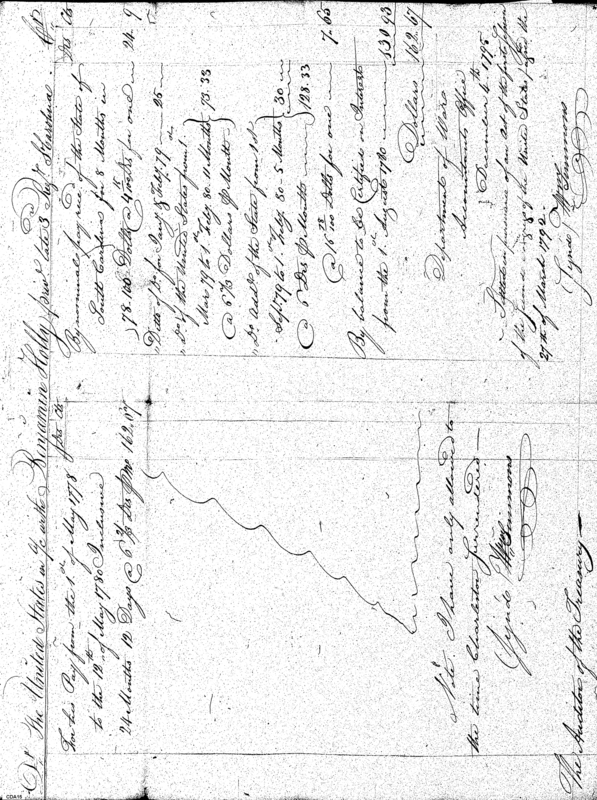 Dr The United States in a/c with Benjamin Holly priv. late 3 Regt S Carolina Cr
Drs Cts
For his Pay from the 1st of May 1778
to the 12th of May 1780 Inclusive
24 Months 12 Days @ 6 2/3 Drs pr Mo 162.67
Note. I have only allowed to
the time Charleston surrendered
Signed Wm Simmons
The Auditor of the Treasury
Drs Cts
By nominal pay recd of the State of
South Carolina for 8 Months in
78. 100 Dolls @ 4 for one in 24. 9
Ditto of Do for Jany & Feby. 79 25
Do of the United States from 1st
Mar 79 to 1st Feby 80. 11 Months 73.33
@ 6 2/3 Dollars pr Month
Do Addl of the State from 1st
Sept 79 to 1st Feby 80 - 5 Months 30
@ 6 Drs pr Month 128.33
@ 16 100 Dolls for one in 7.65
By balance to be Certified on Interest
from the 1st August 1780 130 93
Dollars 162.67
Department of War
Accountants Office
December 4th 1795
of the second Congress of the United States passed the
27th of March 1792.
Signed Wm Simmons
CDA16